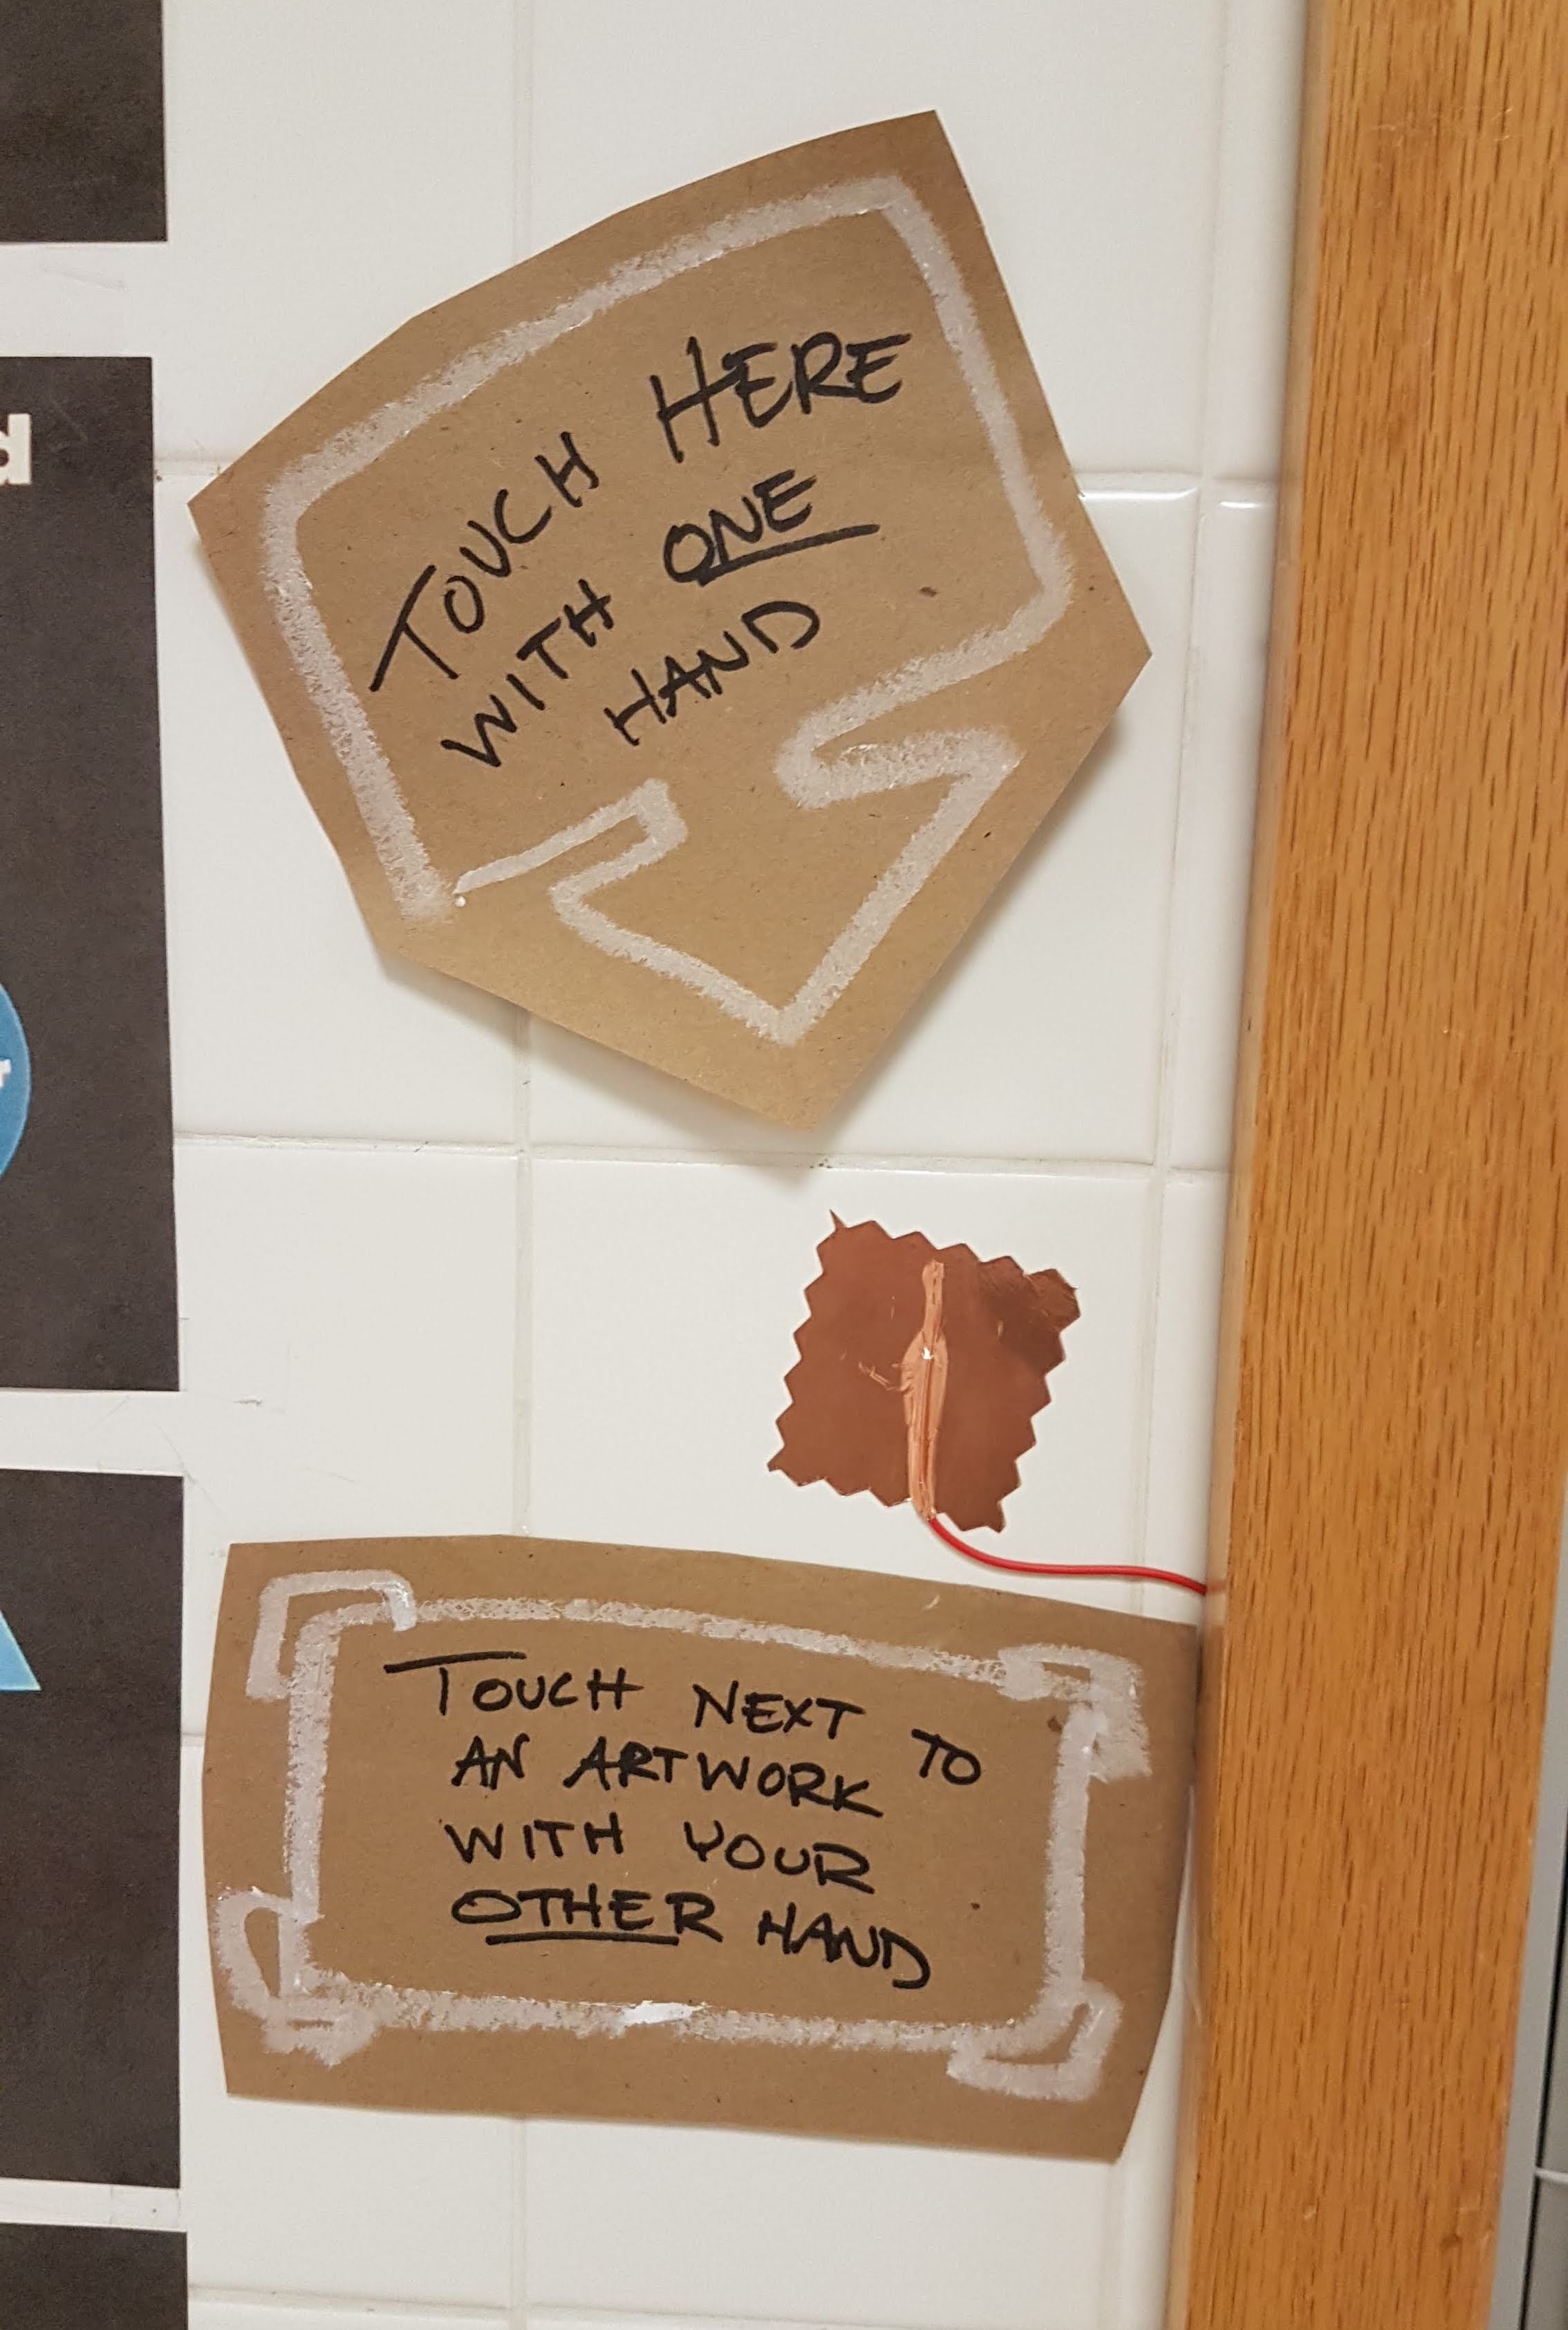 d
TOUCH HERE
WITH ONE
HAND
r
TOUCH NEXT TO
AN ARTWORK
WITH YOUR
OTHER HAND